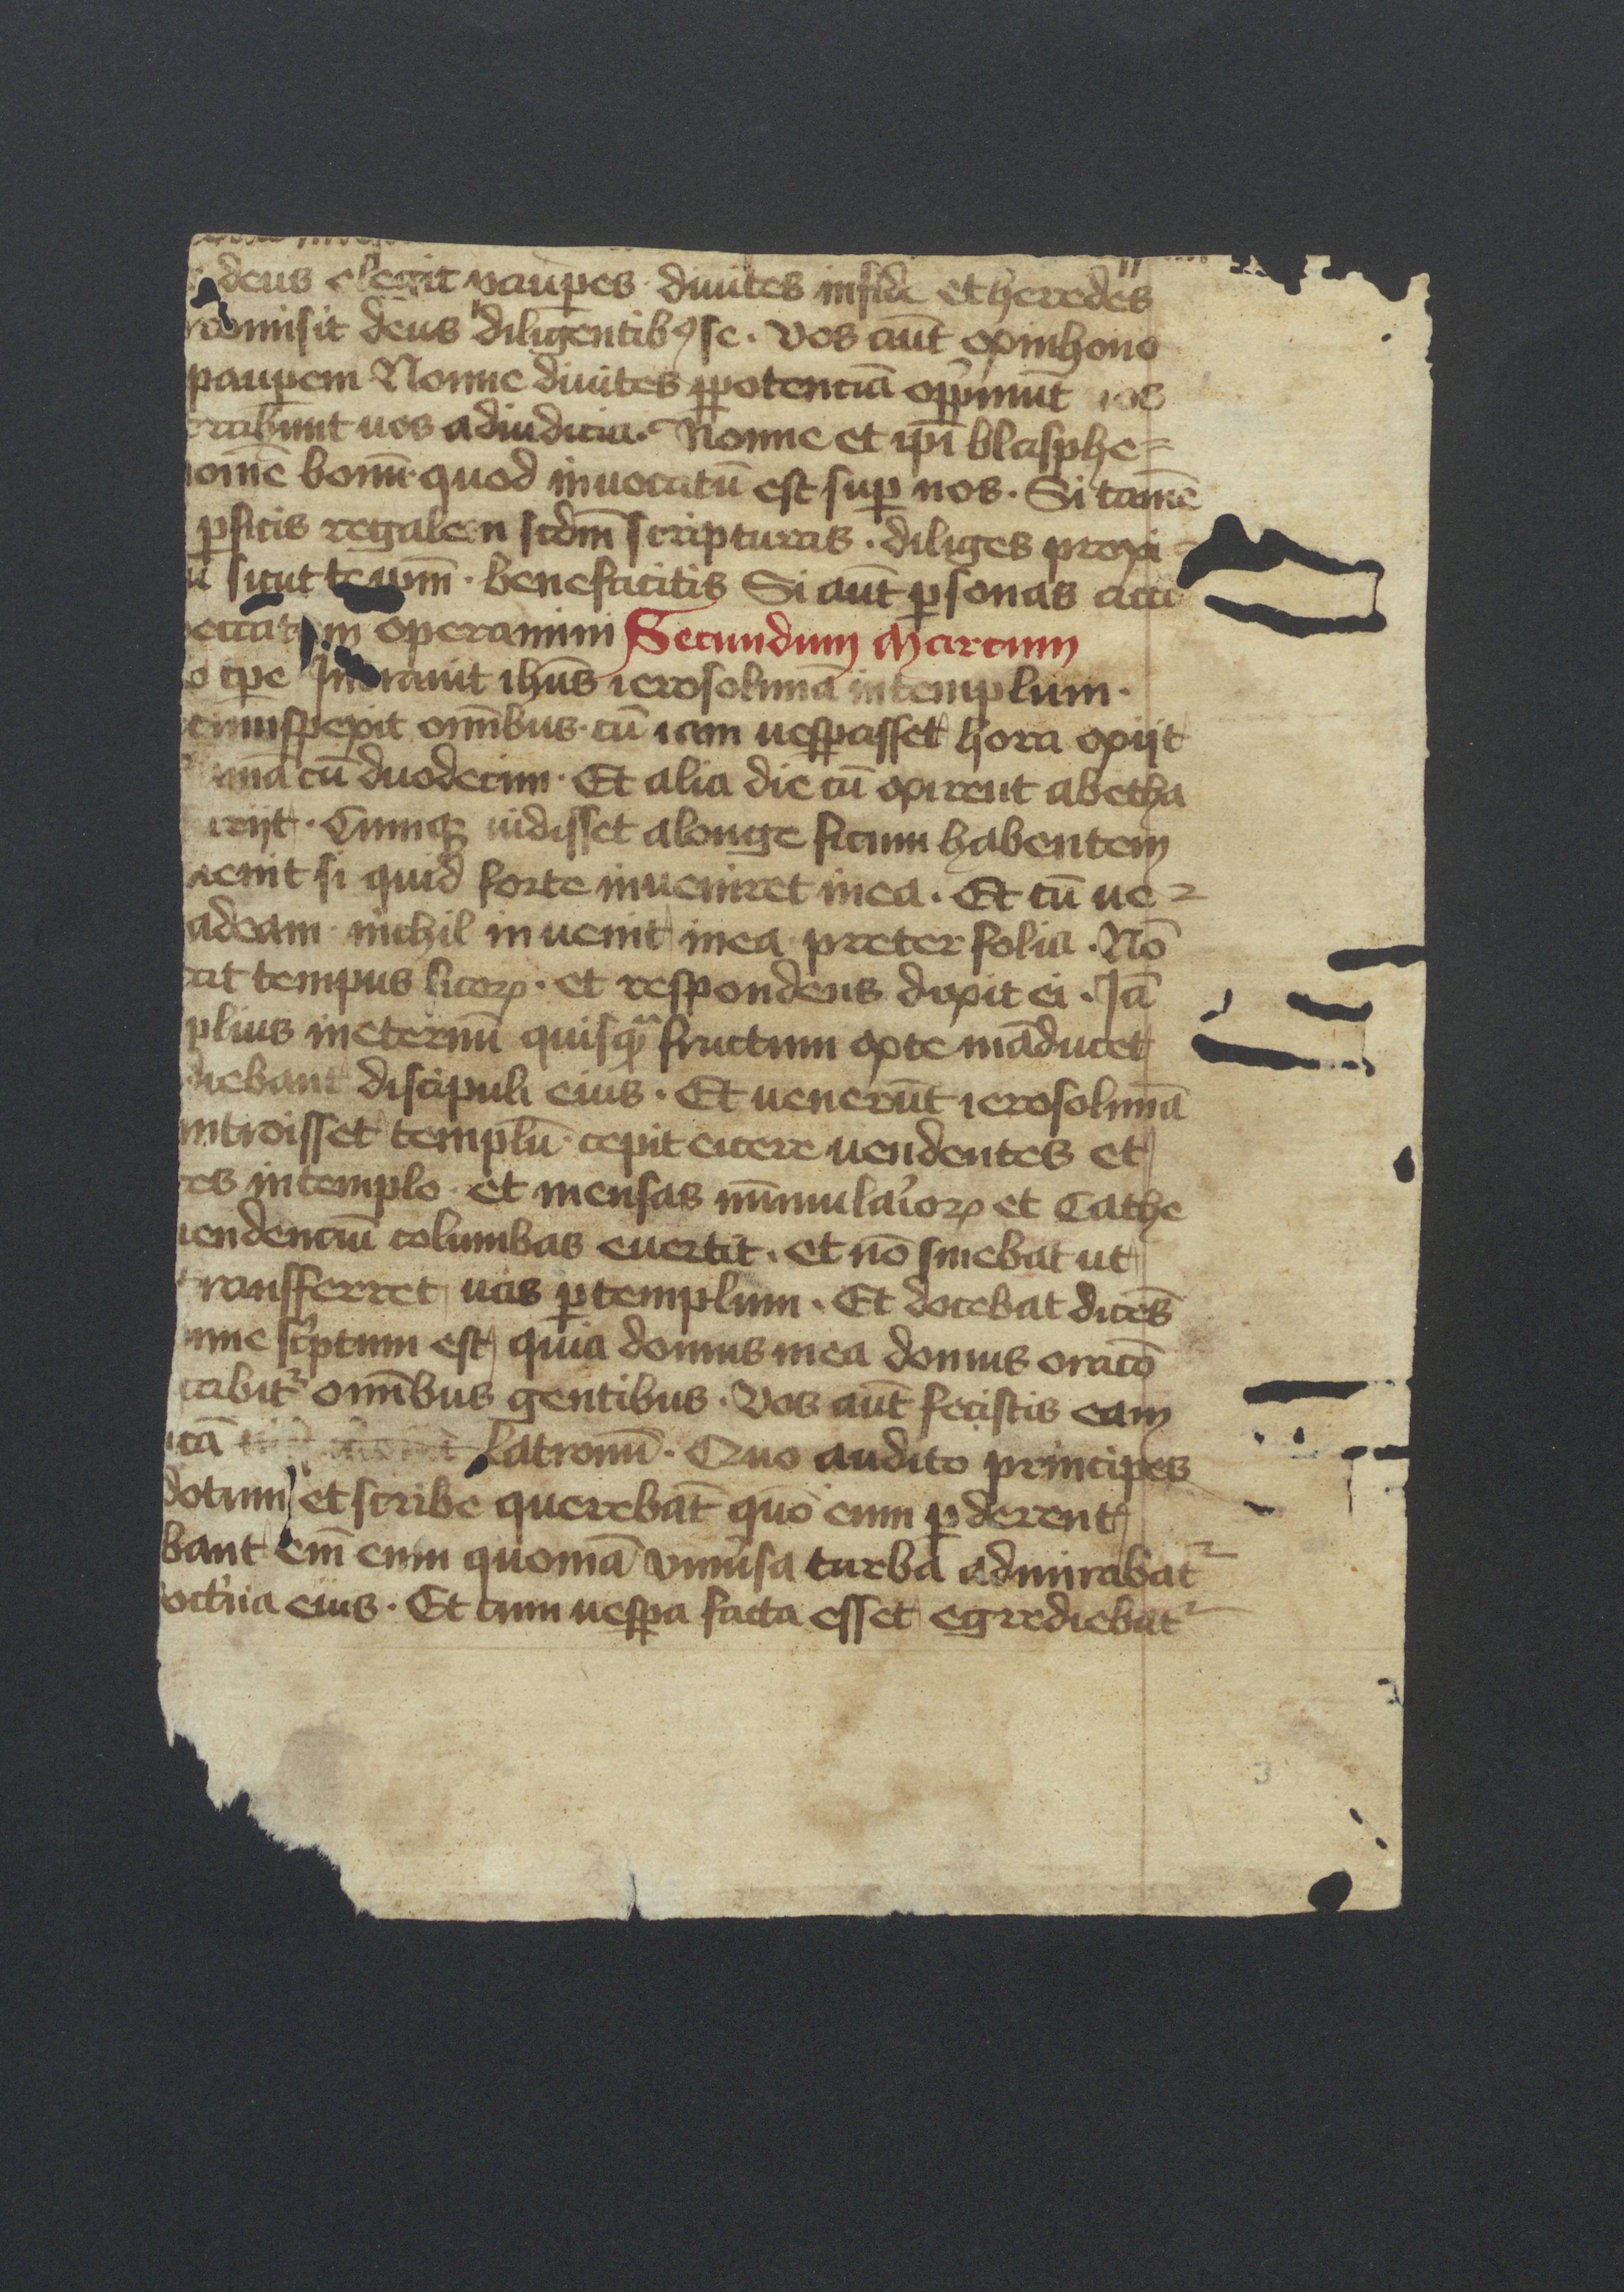 deus elegit paup̄es · diuites in fide et heredes
romisit deus diligentibꝰ se · vos aūt exinhono
paup̄em Nonne diuites ꝑ potenciā opp̄munt uos
trahunt uos ad iudicia · Nonne et ip̄i blasphe=
nomē bonū quod inuocatū est suꝑ nos · Si tamē
ꝑficis regalem scd̄m scripturas · diliges proxi
ū sicut te ip̄m · benefacitis Si aūt ꝑsonas acci
eccatum operamini Secundum Marcum
o tp̄e Intrauit ihūs ierosolimā in templum ·
cumspexit om̄ibus · cū iam uesꝑasset hora exijt
aniā cū duodecim · Et alia die cū exirent a betha
rijt · Cumqꝫ uidisset a longe ficum habentem
uenit si quid forte inueniret in ea · Et cū ue=
ad eam · nichil inuenit in ea preter folia · Nō
rat tempus ficoꝝ · et respondens dixit ei · Iā
plius in eternū quisqᵃ fructum ex te māducet
diebant discipuli eius · Et venerūt ierosolimā
introisset templū · cepit eicere uendentes et
tes in templo · et mensas nūmulaioꝝ et Cathe
uendenciū columbas euertit · et nō sinebat ut
transferret uas ꝑ templum · Et docebat dicēs
nne scͥptum est quia domus mea domus oracō
cabitᷣ om̄ibus gentibus · Vos aūt fecistis eam
cā latronū · Quo audito principes
dotum et scribe querebāt quō eum ꝑderent
bant em̄ eum quoniā vniuͥsa turba admirabatᷣ
octͥna eius · Et cum uesꝑa facta esset egrediebatᷣ
3